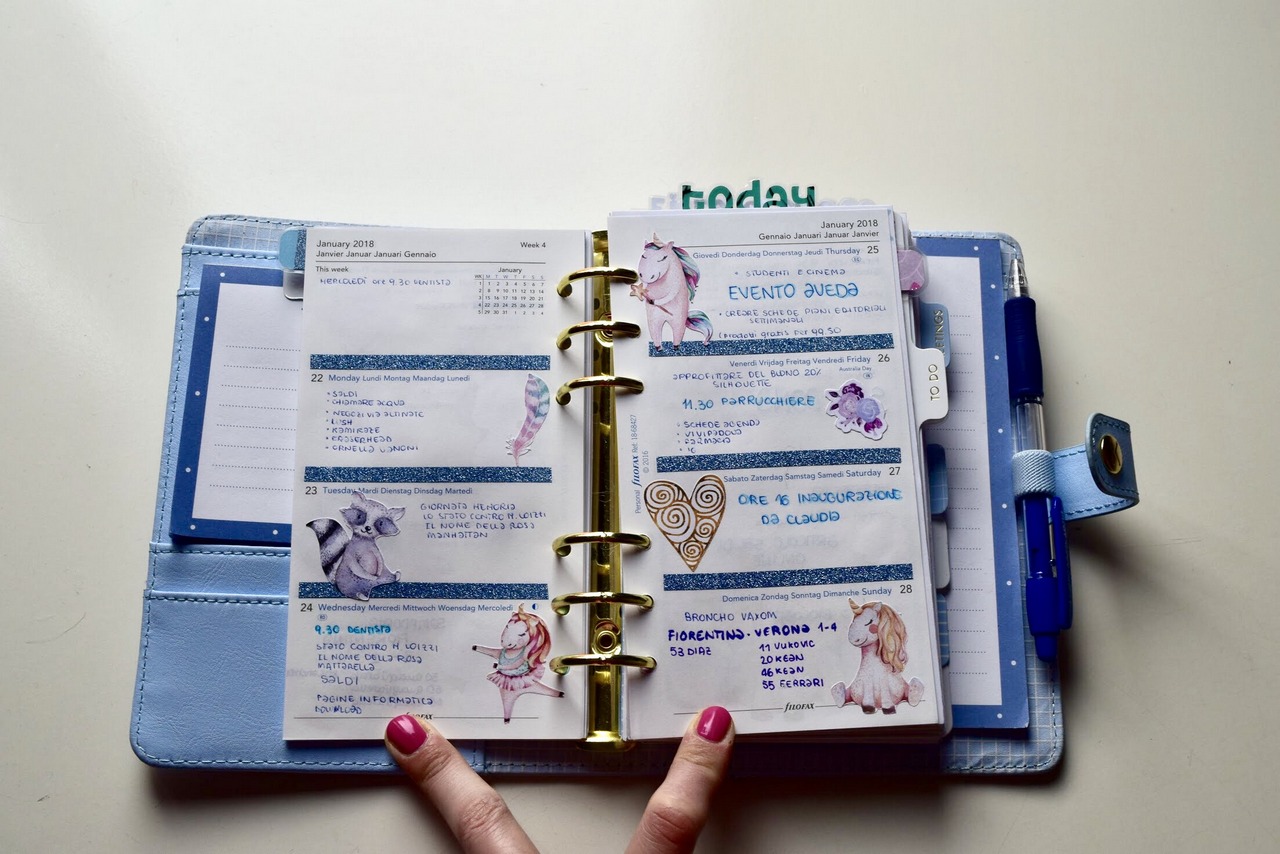 today
January 2018
Week 4
Janvier Januar Januari Gennaio
This week
MERCOLEDÌ ORE 9.30 DENTISTA
January
WK M T W T F S S
1 1 2 3 4 5 6 7
2 8 9 10 11 12 13 14
3 15 16 17 18 19 20 21
4 22 23 24 25 26 27 28
5 29 30 31 1 2 3 4
22 Monday Lundi Montag Maandag Lunedì
• SALDI
• CHIAMARE ACQUA
• NEGOZI VIA ALTINATE
• LUSH
• KAMIKAZE
• ERASERHEAD
• ORNELLA VANONI
23 Tuesday Mardi Dienstag Dinsdag Martedì
GIORNATA MEMORIA
LO STATO CONTRO M. LOIZZI
IL NOME DELLA ROSA
MANHATTAN
24 Wednesday Mercredi Mittwoch Woensdag Mercoledì
9.30 DENTISTA
STATO CONTRO M LOIZZI
IL NOME DELLA ROSA
MATTARELLA
SALDI
PAGINE INFORMATICA
filofax
January 2018
Gennaio Januari Januar Janvier
Giovedì Donderdag Donnerstag Jeudi Thursday 25
• STUDENTI E CINEMA
EVENTO AVEDA
• CREARE SCHEDE PIANI EDITORIALI
SETTIMANALI
(prodotti gratis per 49.50
Venerdì Vrijdag Freitag Vendredi Friday 26
Australia Day
APPROFITTARE DEL BUONO 20%
SILHOUETTE
11.30 PARRUCCHIERE
• SCHEDE AGENDA
• VIVIPADOVA
• FARMACIA
Personal filofax Ref. 18-68427
© 2016
Sabato Zaterdag Samstag Samedi Saturday 27
ORE 16 INAUGURAZIONE
DA CLAUDIA
Domenica Zondag Sonntag Dimanche Sunday 28
BRONCHO VAXOM
FIORENTINA - VERONA 1-4
53 DIAZ
11 VUKOVIC
20 KEAN
46 KEAN
55 FERRARI
filofax
TO DO